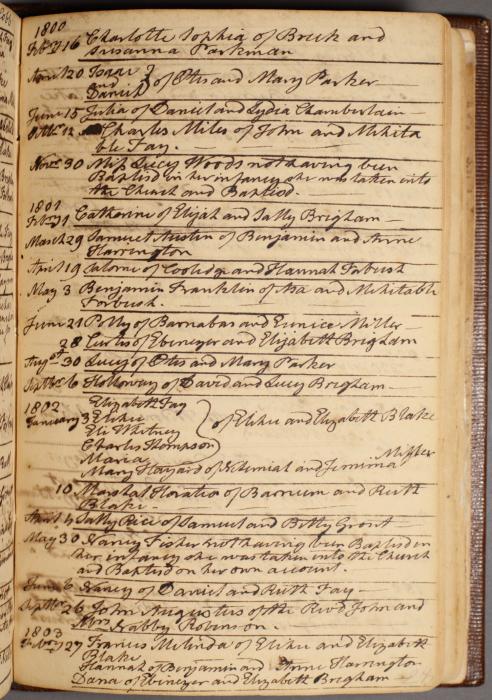 1800
Febry 16 Charlotte Sophia of Breck and
Susanna Parkman
April 20 Isaac
and
Daniel } of Otis and Mary Parker
June 15 Julia of Daniel and Lydia Chamberlain
Octbr 12 Charles Miles of John and Mehita
ble Fay.
Novr 30 Miss Lucy Woods not having been
Baptised in her infancy she was taken into
the Church and Baptised.
1801
Catharine of Elijah and Sally Brigham
March 29 Samuel Austin of Benjamin and Anne
Harrington
April 19 of Cooledge and Hannah Forbush
May 3 Benjamin Franklin of Asa and Mehitable
Forbush.
June 21 Polly of Barnabas and Eunice Miller
28 Curtis of Ebenezer and Elizabeth Brigham
August 30 Lucy of Otis and Mary Parker
Septbr 6 Holloway of David and Lucy Brigham
1802
Elizabeth Fay
January 3 Elihu
Eli Whitney } of Elihu and Elizabeth Blake
Charles Thompson
Maria
Miller
Mary Hayard of Nehemiah and Jemima
10 Marshal Horatio of Barnum and Ruth
Blake
April 4 Sally Rice of Samuel and Betty Grout
May 30 Nancy Fisher not having been Baptised in
her infancy she was taken into the Church
and Baptised on her own account.
June 6 Nancy of Daniel and Ruth Fay
Septbr 26 John Augustus of the Revd John and
Mrs Nabby Robinson.
1803
27 Francis Melinda of Elihu and Elizabeth
Blake
Hannah of Benjamin and Anne Harrington
Dana of Ebenezer and Elizabeth Brigham